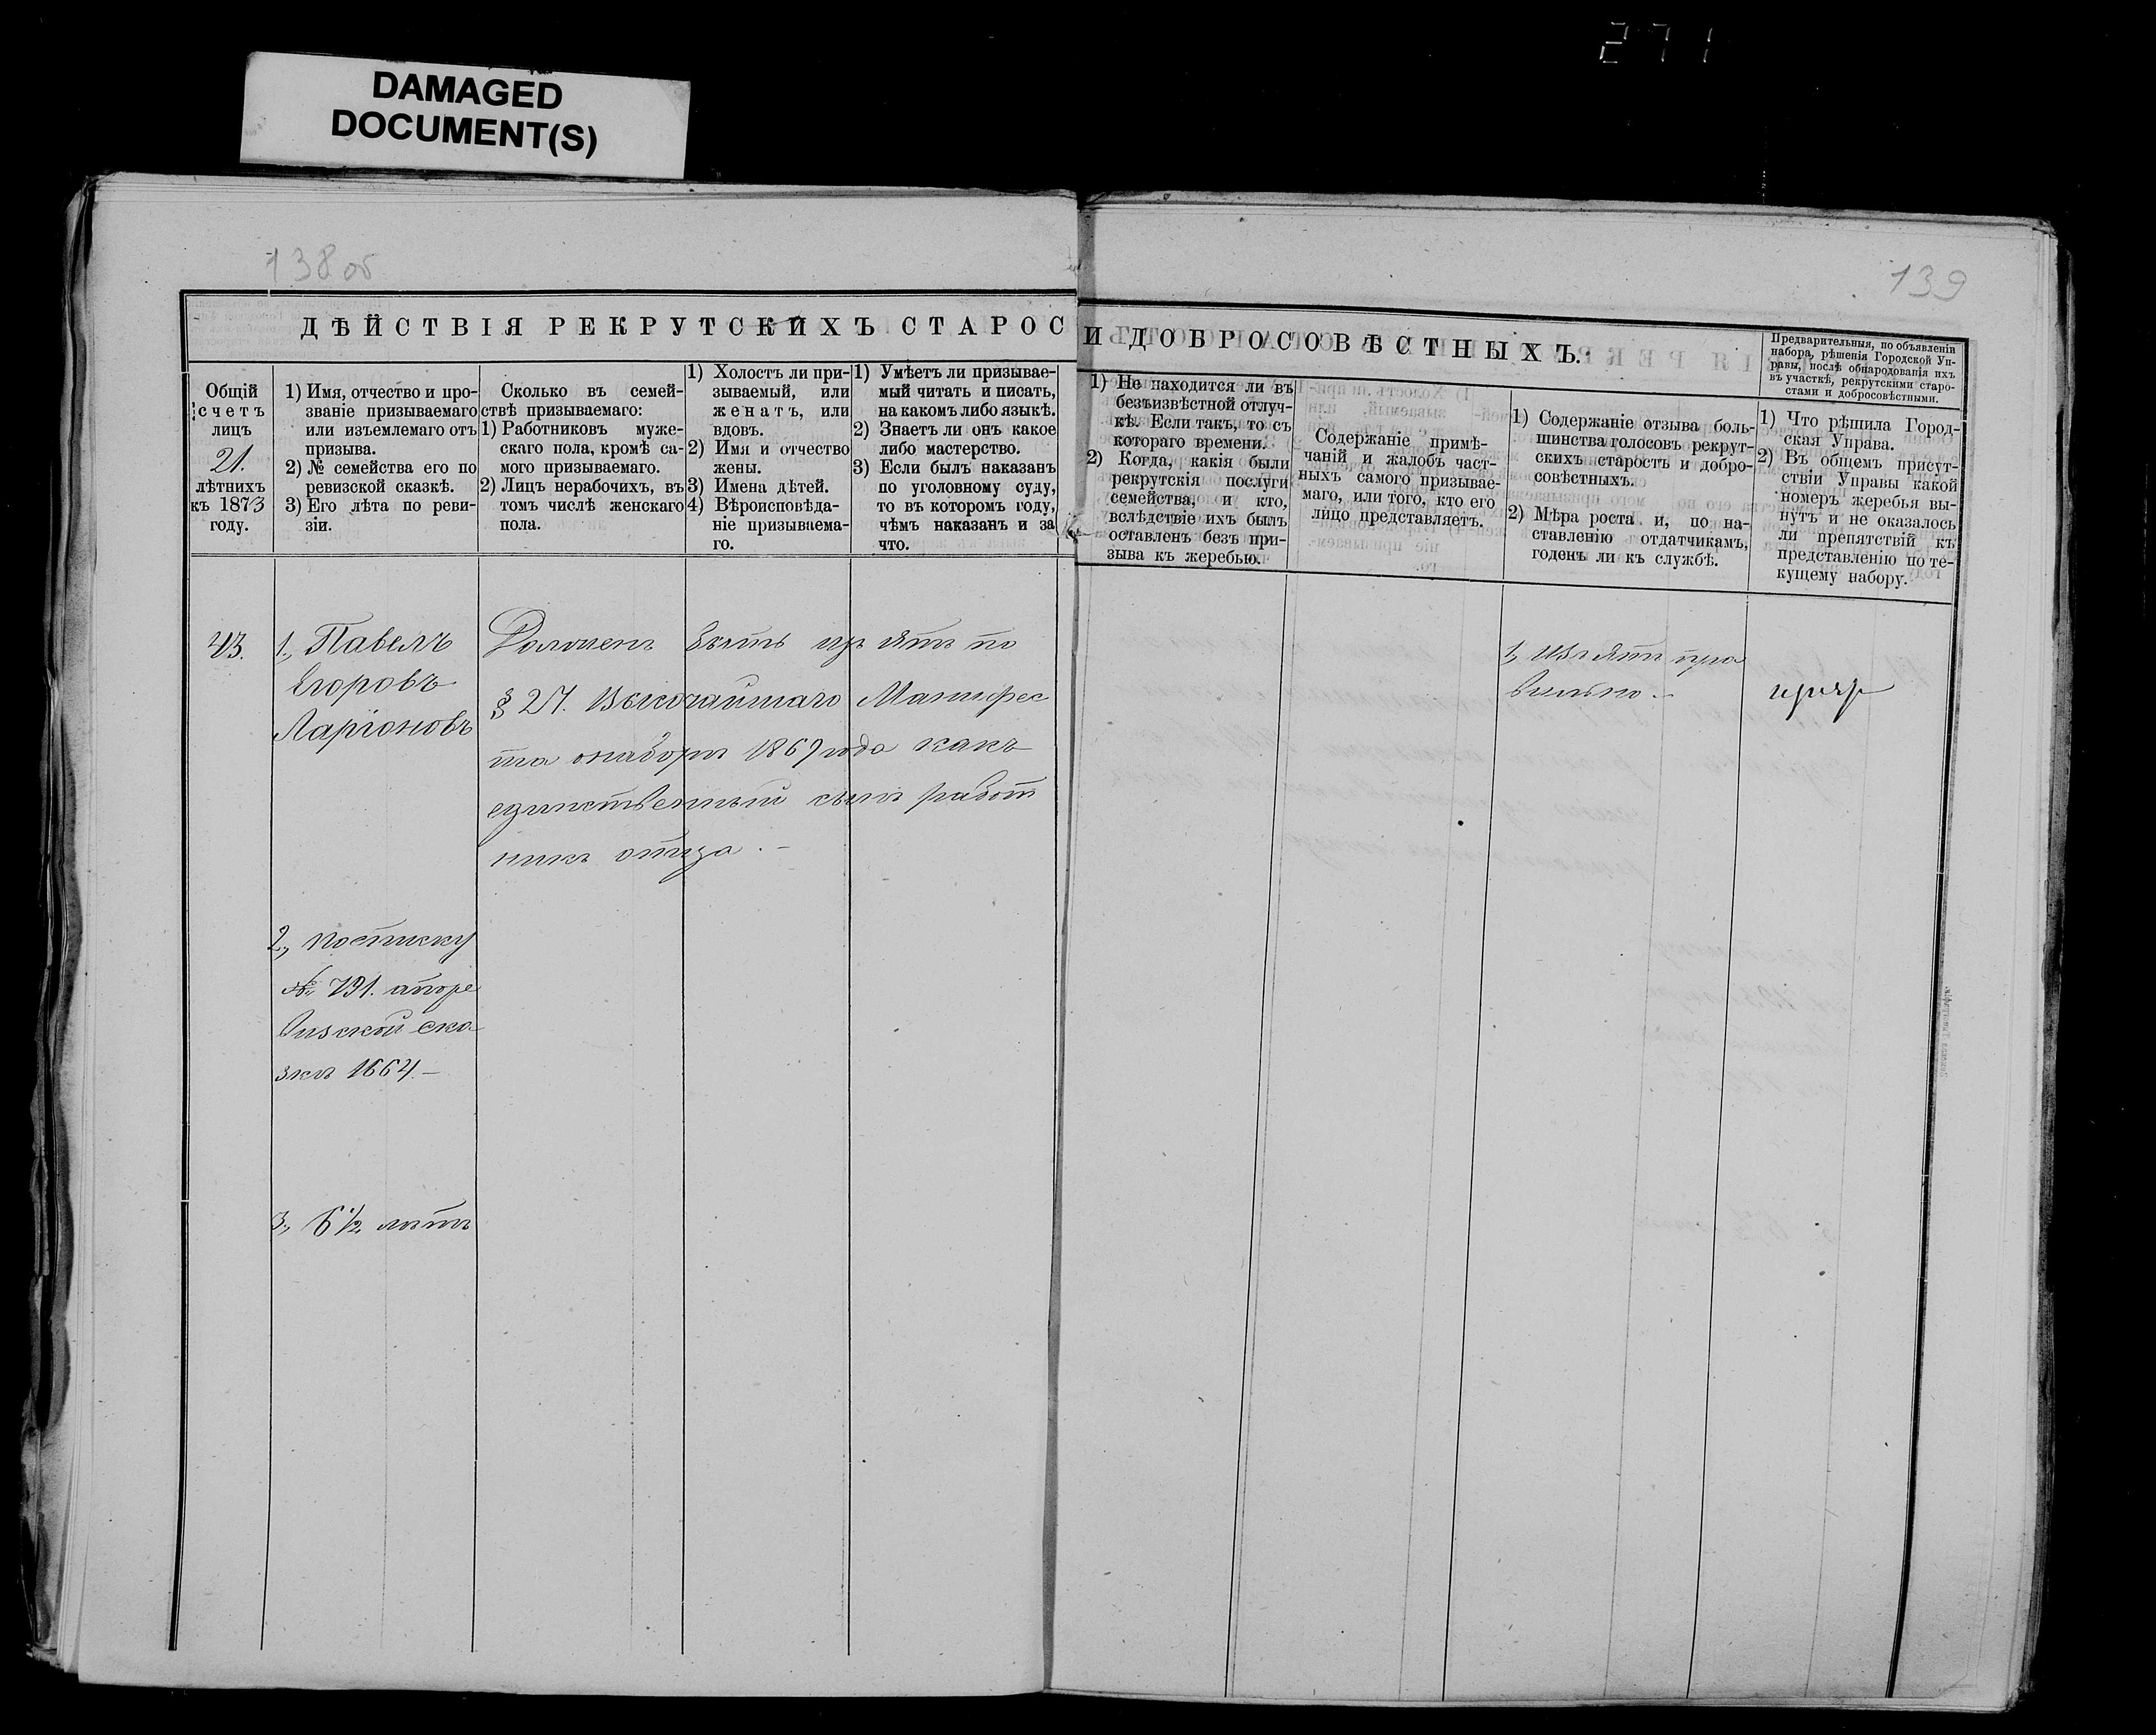 271
DAMAGED
DOCUMENT(S)
138 об
139
ДѢЙСТВІЯ РЕКРУТСКИХЪ СТАРОС
И ДОБРОСОВѢСТНЫХЪ.
Предварительныя, по объявленіи
набора, рѣшенія Городской Уп-
равы, послѣ обнародованія ихъ
въ участкѣ, рекрутскими старо-
стами и добросовѣстными.
Общій
счетъ
лицъ
21.
лѣтнихъ
къ 1873
году.
1) Имя, отчество и про-
званіе призываемаго
или изъемлемаго отъ
призыва.
2) № семейства его по
ревизской сказкѣ.
3) Его лѣта по реви-
зіи.
Сколько въ семей-
ствѣ призываемаго:
1) Работниковъ муже-
скаго пола, кромѣ са-
мого призываемаго.
2) Лицъ нерабочихъ, въ
томъ числѣ женскаго
пола.
1) Холостъ ли при-
зываемый, или
женатъ, или
вдовъ.
2) Имя и отчество
жены.
3) Имена дѣтей.
4) Вѣроисповѣда-
ніе призываема-
го.
1) Умѣетъ ли призывае-
мый читать и писать,
на какомъ либо языкѣ.
2) Знаетъ ли онъ какое
либо мастерство.
3) Если былъ наказанъ
по уголовному суду,
то въ которомъ году,
чѣмъ наказанъ и за
что.
1) Не находится ли въ
безъизвѣстной отлуч-
кѣ. Если такъ, то съ
котораго времени.
2) Когда, какія были
рекрутскія послуги
семейства, и кто,
вслѣдствіе ихъ былъ
оставленъ безъ при-
зыва къ жеребью.
Содержаніе примѣ-
чаній и жалобъ част-
ныхъ самого призывае-
маго, или того, кто его
лицо представляетъ.
1) Содержаніе отзыва боль-
шинства голосовъ рекрут-
скихъ старостъ и добро-
совѣстныхъ.
2) Мѣра роста и, по на-
ставленію отдатчикамъ,
годенъ ли къ службѣ.
1) Что рѣшила Город-
ская Управа.
2) Въ общемъ присут-
ствіи Управы какой
номеръ жеребья вы-
нутъ и не оказалось
ли препятствій къ
представленію по те-
кущему набору.
43.
1., Павелъ
Егоровъ
Ларіоновъ
Долженъ быть изъятъ по
§ 27. Высочайшаго Манифес
та онаборѣ 1869 года какъ
единственный сынъ работ
никъ отца. –
2., посписку
№ 791. апоре
визской ска
зкѣ 1664. –
3., 6 1/2 лѣтъ
1., Изъятъ пра
вильно. –